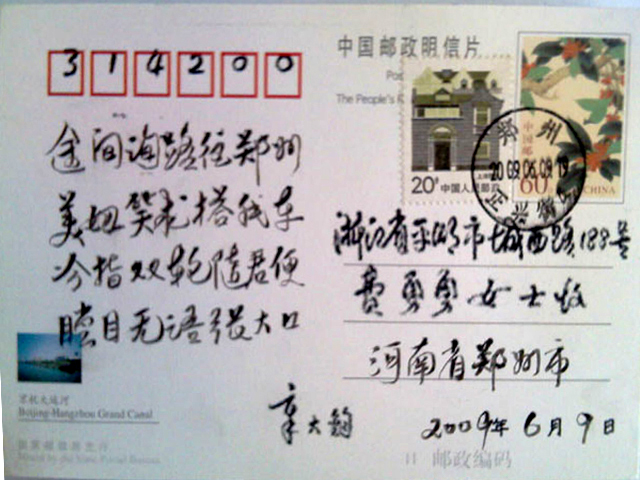 314200
中国邮政明信片
Po
The People's
中国邮政
60分
CHINA
20分 中国人民邮政
郑州
2009.06.09.19
途间询路往郑州
美妞笑龙搭我车
冷指双乾随君便
瞠目无语张大口
浙江省平湖市城西路188号
费勇勇女士收
河南省郑州市
章大
2009年6月9日
京杭大运河
Beijing-Hangzhou Grand Canal
国家邮政局发行
Issued by the State Postal Bureau
邮政编码